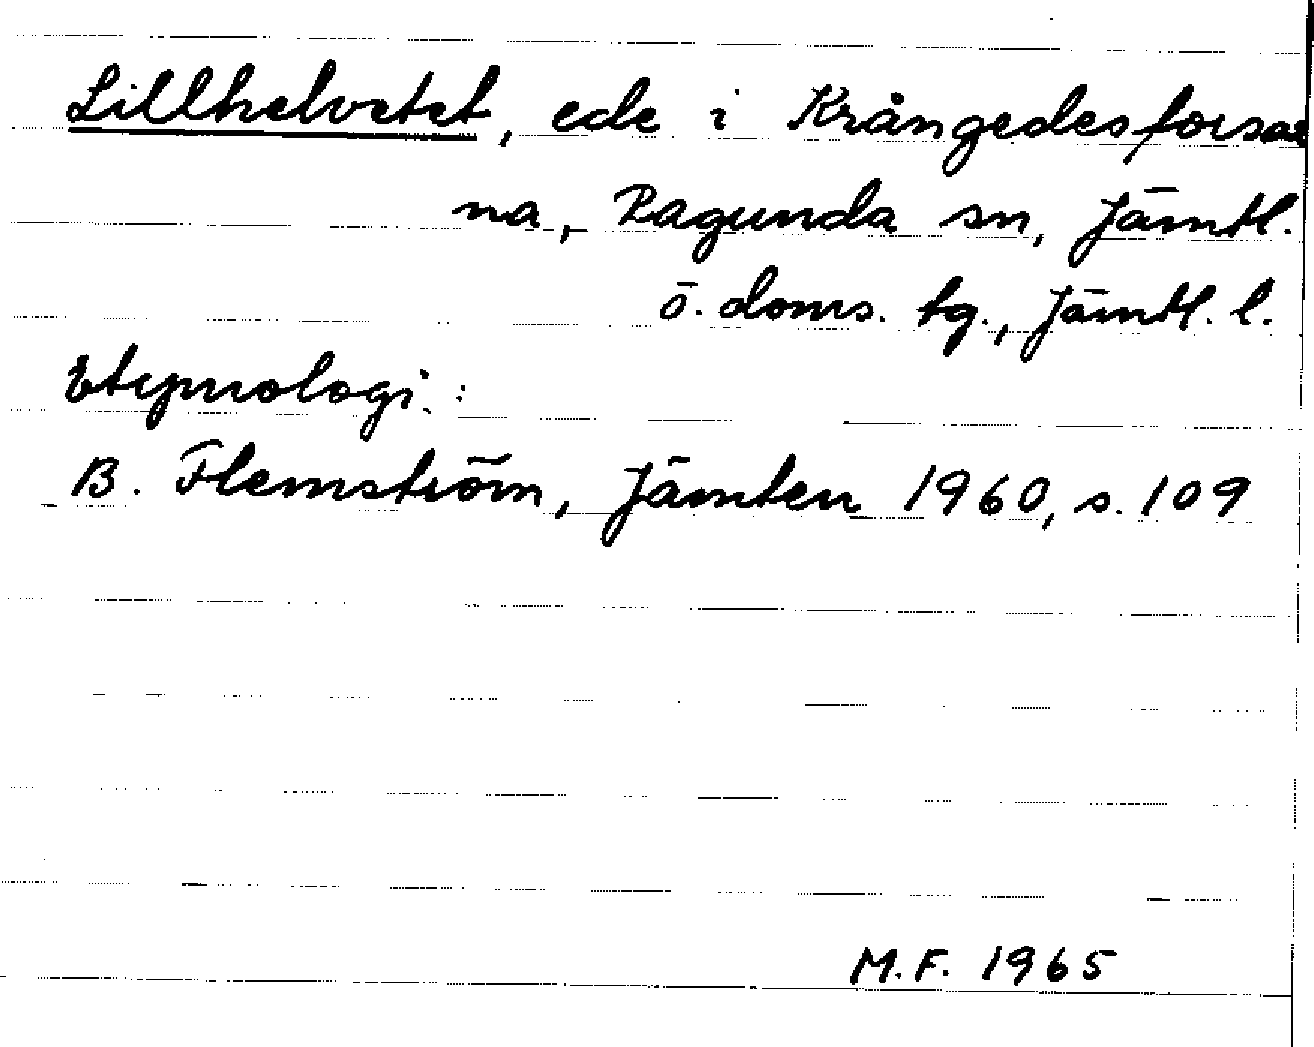 Lillhelvetet, ede i Krångedesforsar
na, Ragunda sn, Jämtl.
ö. doms. tg., Jämtl. l.
Etymologi:
B. Flemström, Jämten 1960, s. 109
M.F. 1965